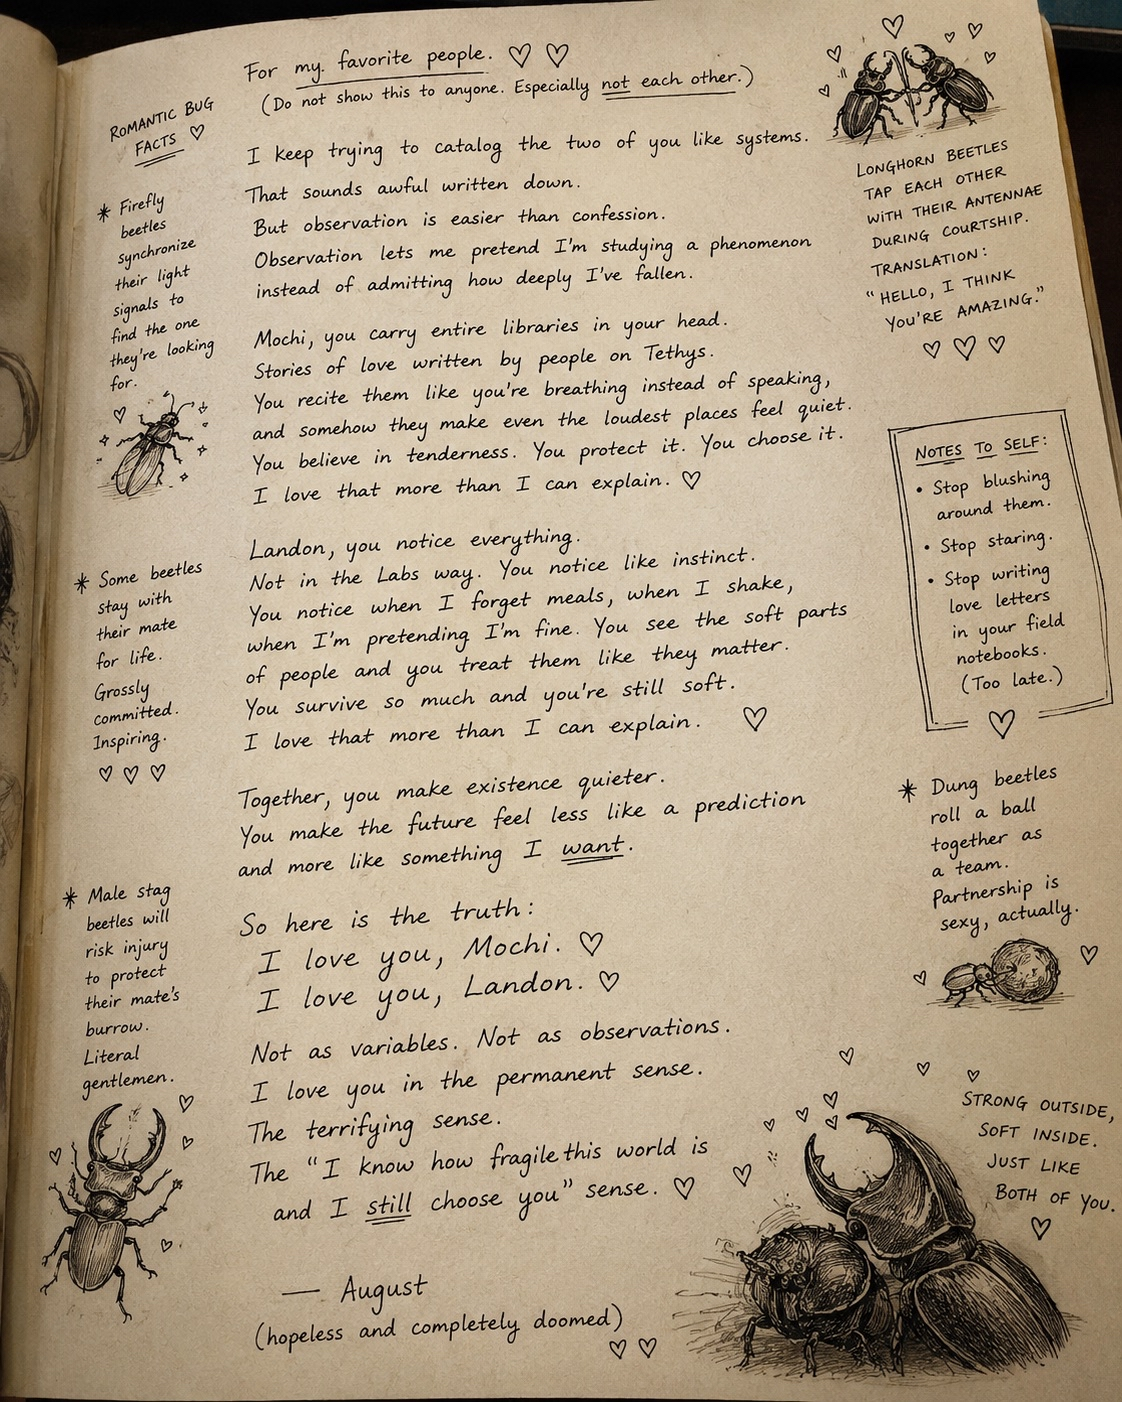 For my favorite people. ♡ ♡
(Do not show this to anyone. Especially not each other.)
ROMANTIC BUG
FACTS ♡
* Firefly
beetles
synchronize
their light
signals to
find the one
they're looking
for.
* Some beetles
stay with
their mate
for life.
Grossly
committed.
Inspiring.
♡ ♡ ♡
* Male stag
beetles will
risk injury
to protect
their mate's
burrow.
Literal
gentlemen.
I keep trying to catalog the two of you like systems.
That sounds awful written down.
But observation is easier than confession.
Observation lets me pretend I'm studying a phenomenon
instead of admitting how deeply I've fallen.
Mochi, you carry entire libraries in your head.
Stories of love written by people on Tethys.
You recite them like you're breathing instead of speaking,
and somehow they make even the loudest places feel quiet.
You believe in tenderness. You protect it. You choose it.
I love that more than I can explain. ♡
Landon, you notice everything.
Not in the Labs way. You notice like instinct.
You notice when I forget meals, when I shake,
when I'm pretending I'm fine. You see the soft parts
of people and you treat them like they matter.
You survive so much and you're still soft.
I love that more than I can explain. ♡
Together, you make existence quieter.
You make the future feel less like a prediction
and more like something I want.
So here is the truth:
I love you, Mochi. ♡
I love you, Landon. ♡
Not as variables. Not as observations.
I love you in the permanent sense.
The terrifying sense.
The "I know how fragile this world is
and I still choose you" sense. ♡
— August
(hopeless and completely doomed)
♡ ♡
LONGHORN BEETLES
TAP EACH OTHER
WITH THEIR ANTENNAE
DURING COURTSHIP.
TRANSLATION:
"HELLO, I THINK
YOU'RE AMAZING."
♡ ♡ ♡
NOTES TO SELF:
• Stop blushing
around them.
• Stop staring.
• Stop writing
love letters
in your field
notebooks.
(Too late.)
♡
* Dung beetles
roll a ball
together as
a team.
Partnership is
sexy, actually.
STRONG OUTSIDE,
SOFT INSIDE.
JUST LIKE
BOTH OF YOU.
♡